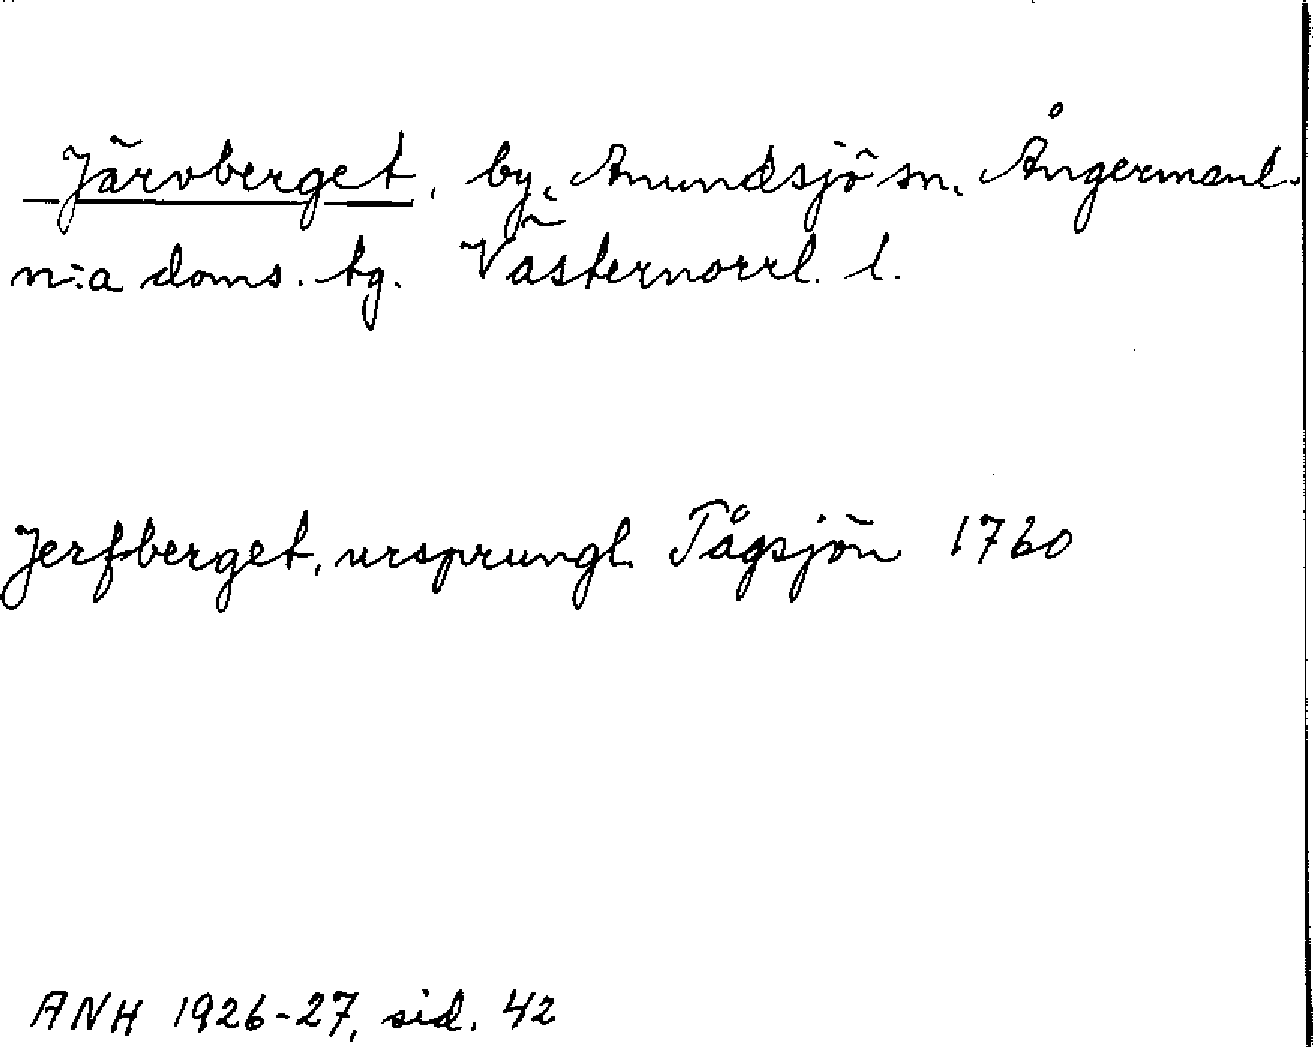 Järvberget, by, Anundsjö sn. Ångermanl.
n:a doms. tg. Västernorrl. l.
Jerfberget, ursprungl. Tågsjön 1760
ANH 1926-27, sid. 42